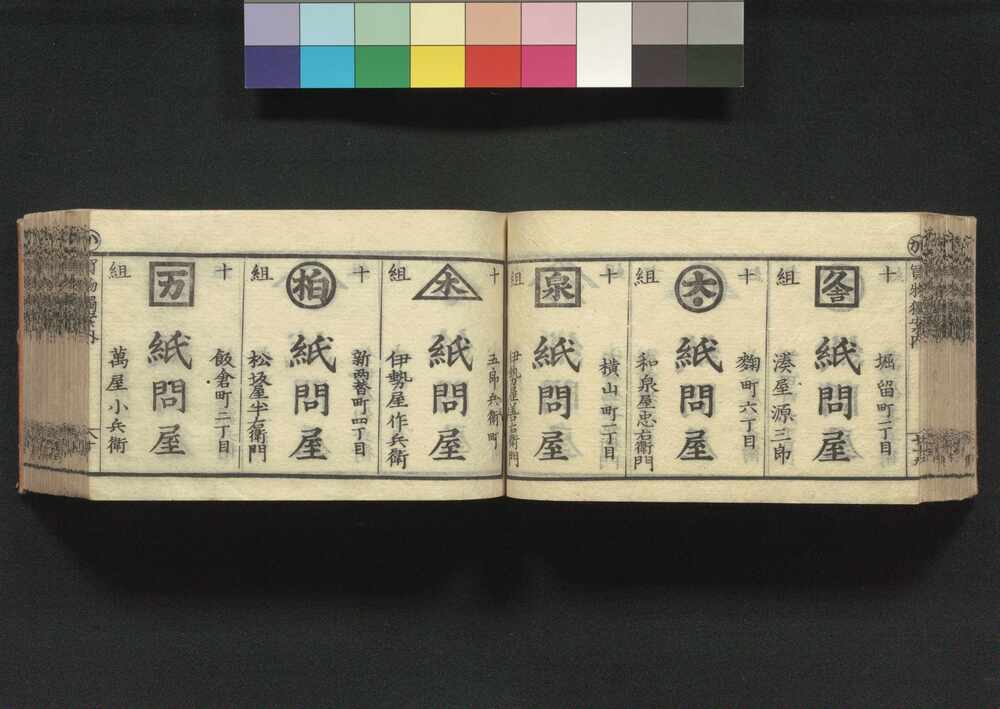 十組
堀留町二丁目
紙問屋
湊屋源三郎
十組
大
麴町六丁目
紙問屋
和泉屋忠右衛門
十組
泉
横山町二丁目
紙問屋
伊勢屋善右衛門
十組
五郎兵衛町
紙問屋
伊勢屋作兵衛
十組
柏
新両替町四丁目
紙問屋
松坂屋半右衛門
十組
万
飯倉町二丁目
紙問屋
萬屋小兵衛